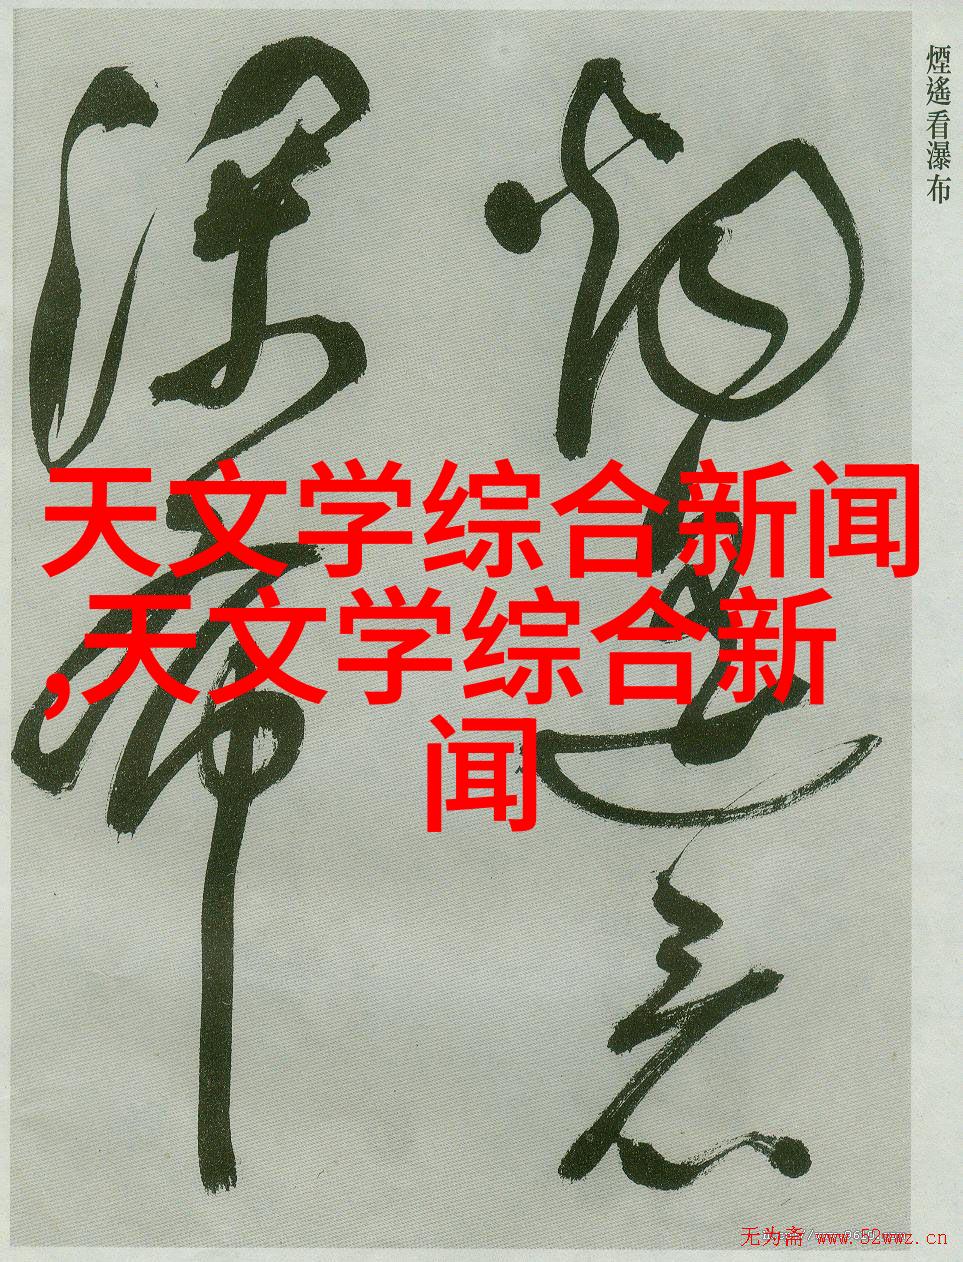 煙遙看瀑布
煙遙看
瀑布
天文学综合新闻
,天文学综合新
闻
无为斋 www.52wwz.cn